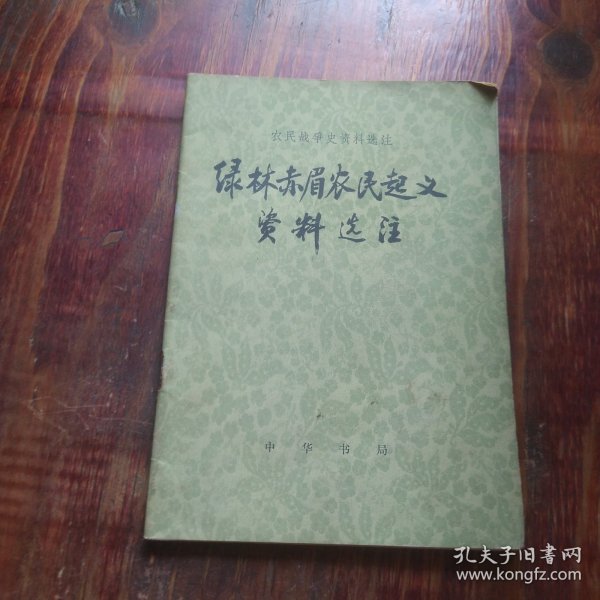 农民战争史资料选注
绿林赤眉农民起义
资料选注
中华书局
孔夫子旧书网
www.kongfz.com